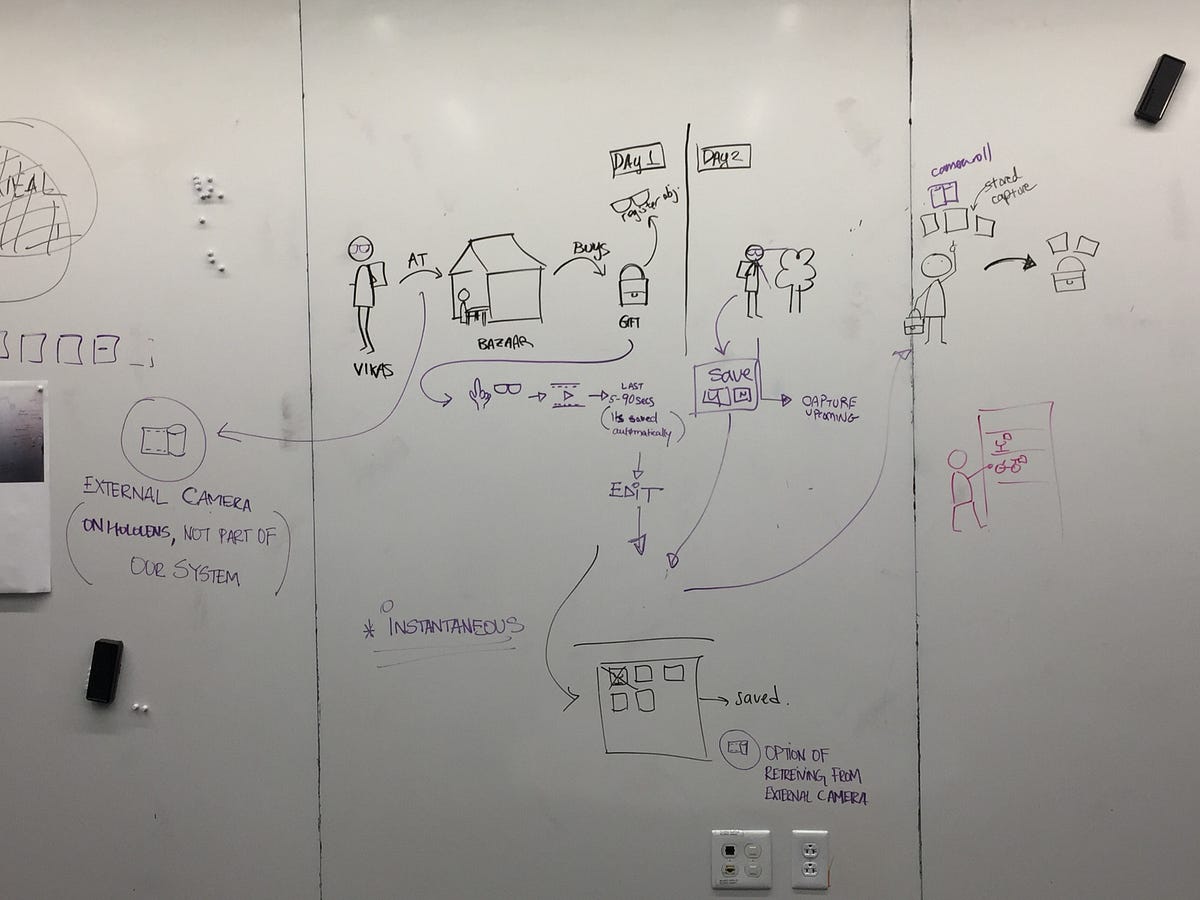 DAY 1
DAY 2
register obj.
AT
BUYS
VIKAS
BAZAAR
GIFT
LAST
5-90 SECS
(its saved
automatically)
EDIT
save
CAPTURE
UPCOMING
cameraroll
stored
capture
EXTERNAL CAMERA
(ON HOLOLENS, NOT PART OF
OUR SYSTEM)
* INSTANTANEOUS
saved.
OPTION OF
RETREIVING FROM
EXTERNAL CAMERA